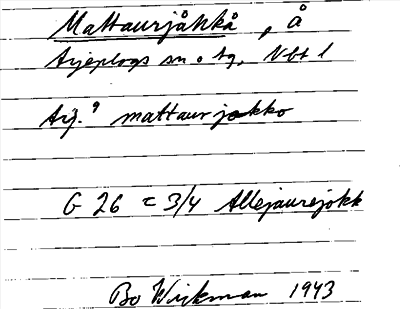 Mattaurjåkkå, å
Arjeplogs sn o tg, Vbt l
Arj. 9 mattaurjokko
G 26 c 3/4 Allejaurejokk
Bo Wickman 1943